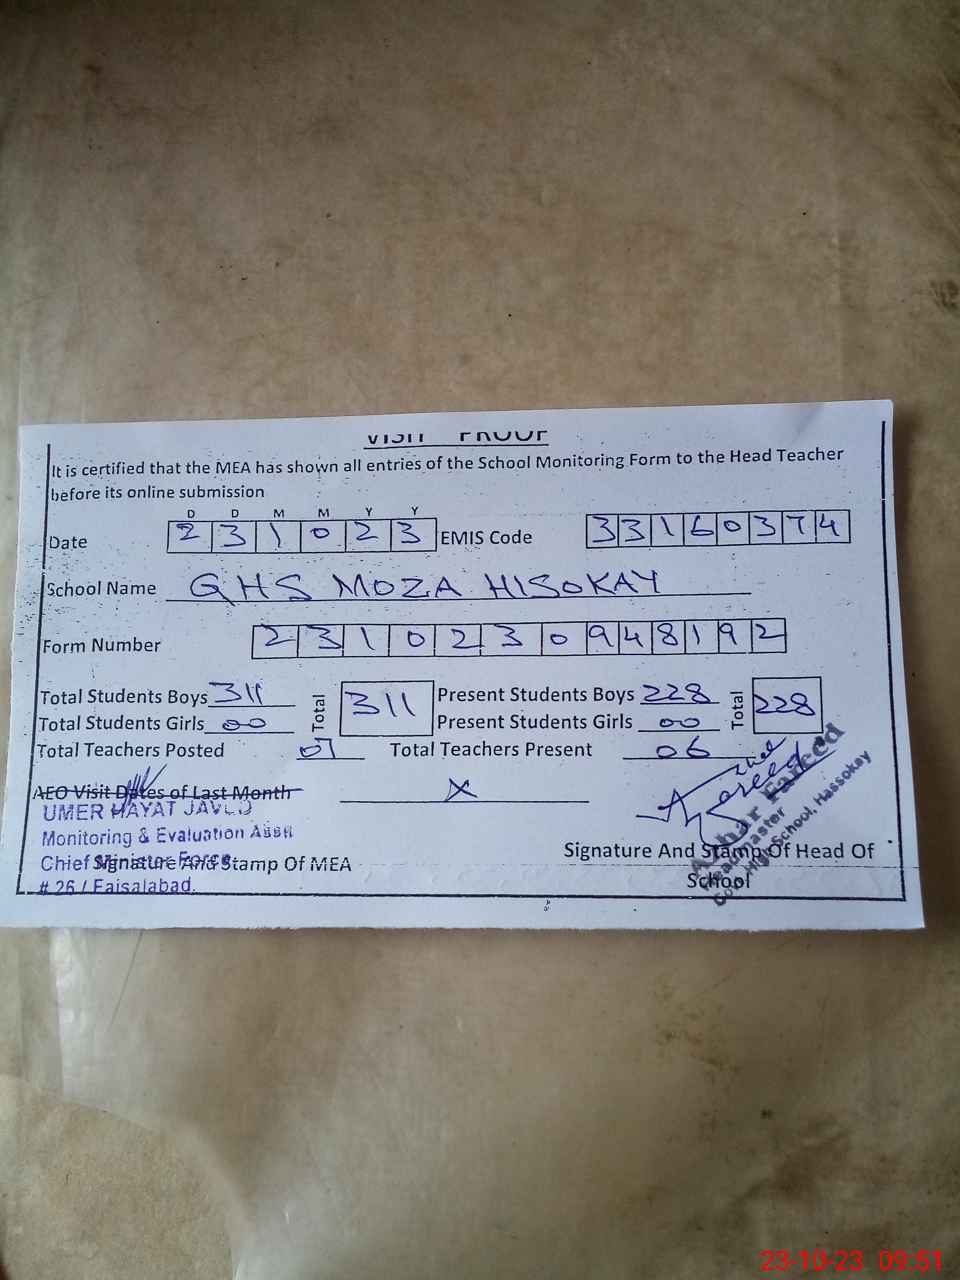 VISIT PROOF
It is certified that the MEA has shown all entries of the School Monitoring Form to the Head Teacher
before its online submission
D D M M Y Y
Date 2 3 1 0 2 3 EMIS Code 3 3 1 6 0 3 7 4
School Name GHS MOZA HISOKAY
Form Number 2 3 1 0 2 3 0 9 4 8 1 9 2
Total Students Boys 311 Total 311 Present Students Boys 228 Total 228
Total Students Girls 00 Present Students Girls 00
Total Teachers Posted 07 Total Teachers Present 06
AEO Visit Dates of Last Month X
UMER HAYAT JAVED
Monitoring & Evaluation Asstt
Chief Minister Force
Signature And Stamp Of MEA
# 26 / Faisalabad.
Signature And Stamp Of Head Of
School
Azhar Fareed
Headmaster
Govt. High School, Hassokay
23-10-23 09:51